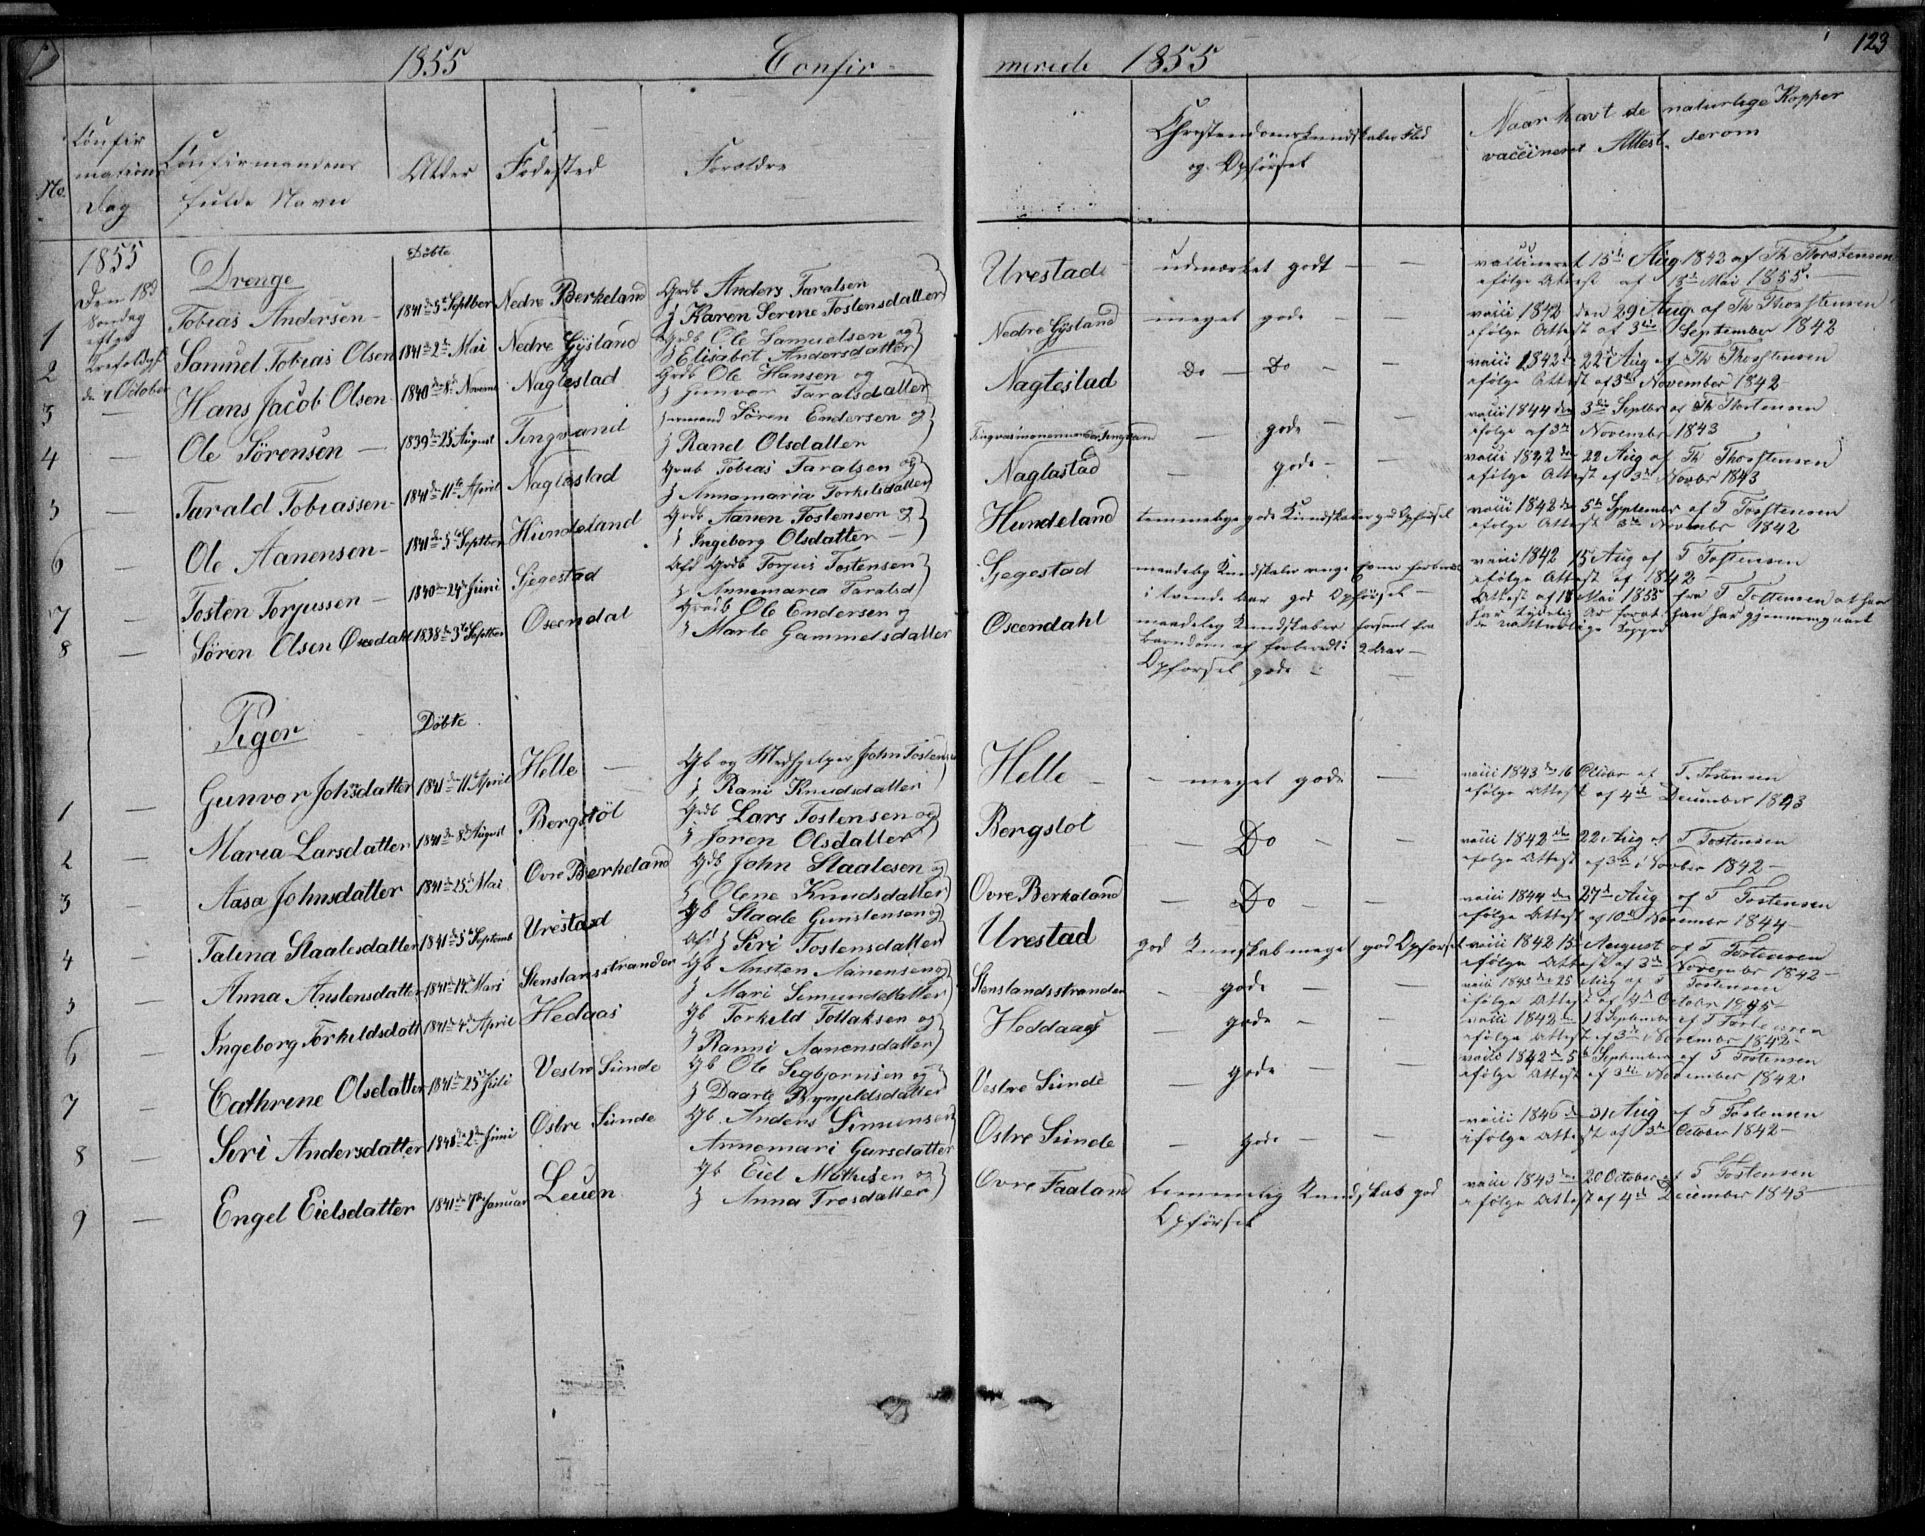 1855 Confir-
merede 1855
123
No.
Confir
mations
Dag
Confirmandens
fulde Navn
Alder
Födested
Foroldre
Christendomskundskaber Flid
og Opförsel
Naar havt de naturlige Kopper
vaccineret Attest derom
1855
Den 18d
Söndag
efter
Trefoldgh
de 7 October
Drenge
Döbte
1 Tobias Andersen - 1841 de 5te Septber Nedre Berkeland Grdb Anders Taralsen
Karen Serine Tostensdatter
Urestad udmærket godt - -
vaccineret 15de Aug 1842 af Th Thorstensen
efölge Attest af 18de Mai 1855.
2 Samuel Tobias Olsen 1841 de 2de Mai Nedre Gÿsland Grdb Ole Samuelsen og
Elisabet Andersdatter
Nedre Gÿsland meget gode - -
vacci 1842 den 29 Aug af Th Thorstensen
efölge Attest af 3die September 1842
3 - Hans Jacob Olsen 1840 de 8de Novem Naglestad Grdb Ole Hansen og
Gunvor Taralsdatter
Naglestad Do - Do - -
vacci 1842 de 22de Aug af Th Thorstensen
efölge Attest af 3die November 1842
4 - Ole Sörensen - 1839 de 25 August Tingvand Sören Endersen og
Ranel Olsdatter
- gode -
vacci 1844 den 3die Septbr af Th Thorstensen
efölge af 3die November 1843
5 - Tarald Tobiassen 1841 de 11te April Naglestad Grdb Tobias Taralsen og
Annamaria Torkelsdatter
Naglastad - gode - -
vacci 1842 den 22 Aug af Th Thorstensen
efölge Attest af 3die Novbr 1843
6 - Ole Aanensen - 1841 de 5te Septber Hundeland Grdb Aanen Tostensen og
Ingeborg Olsdatter -
Hundeland temmelige gode Kundskaber gd Opförsel
vacci 1842 de 5te September af T Torstensen
efölge Attest 3die Novembr 1842
7 - Tosten Torjussen - 1840 de 24de Juni Sjegestad Grdb Torjus Tostensen
Annemarea Taralsd
Sjegestad maadelig Kundskaber
god Opförsel -
vacci 1842 15 Aug af T Tostensen
efölge Attest af 1842 -
8 - Sören Olsen Osendahl 1838 de 3te Septber Osendal Grdb Ole Endersen og
Marte Gammelsdatter
Oseendahl maadelig Kundskaber forsömt fra
Barndom af forberedt i 2 Aar -
Opforsel gode -
Attest af 18 Mai 1855 fra T Tostensen at han
har tydelig Ar forat han har gjennemgaaet
de naturlige Kopper
Piger
Döbte
1 Gunvor Johnsdatter 1841 de 11te April Helle - Gb og Medhjelper John Tostensen
Rani Knudsdatter
Helle - - meget gode -
vacci 1843 de 16 Octbr af T. Tostensen
efölge Attest af 4de December 1843
2 - Maria Larsdatter 1841 de 8de August Bergstöl Grdb Lars Tostensen og
Joren Olsdatter
Bergstol - - Do - -
vacci 1842 den 22 Aug af T Tostensen
efölge Attest af 3die Novber 1842 -
3 - Aasa Johnsdatter 1841 de 23de Mai Ovre Berkeland Gdb John Staalesen og
Olene Knudsdatter
Ovre Berkeland - Do - -
vacci 1844 den 27de Aug af T Tostensen
efölge Attest af 10de November 1844 -
4 - Talina Staalesdatter 1841 de 5te Septemb Urestad Gb Staale Gunstensen og
Siri Tostensdatter
Urestad god Kunskab meget god Opforsel
vacci 1842 15 August af T Tostensen
efölge Attest af 3de November 1842 -
5 - Anna Anstensdatter 1841 de 14de Mars Stenslansstranden Gb Ansten Aanensen og
Mari Semundsdatter
Stenslandsstranden - gode -
vacci 1843 de 25 Aug af T Tostensen
ifölge Attest af 4de October 1845 -
6 - Ingeborg Torkeldsdatt 1841 de 4de April Hedaas Gb Torkeld Tollaksen og
Ranni Aanensdatter
Heddaas - gode - -
vacci 1842 de 18 September af T Tostensen
efölge Attest af 3die November 1842 -
7 - Cathrine Olsdatter 1841 de 25de Juli Vestre Sunde Gb Ole Segbjornsen og
Daarte Rynjeldsdatter
Vestre Sunde - gode - -
vacci 1842 de 5te September af T Tostensen
efölge Attest af 3die November 1842.
8 - Siri Andersdatter 1841 de 2de Juni Ostre Sunde Gb Anders Simunsen
Annemari Garsdatter
Ostre Sunde - gode - -
vacci 1846 de 31 Aug af T Tostensen
ifölge Attest af 3de October 1842 -
9 - Engel Eielsdatter 1841 de 7de Januar Leuen Gb Eiel Mathisen og
Anna Trosdatter
Ovre Faaland temmelig Kundskab god
Opförsel
vacci 1843 de 20 October af T Tostensen
efölge Attest af 4de December 1843